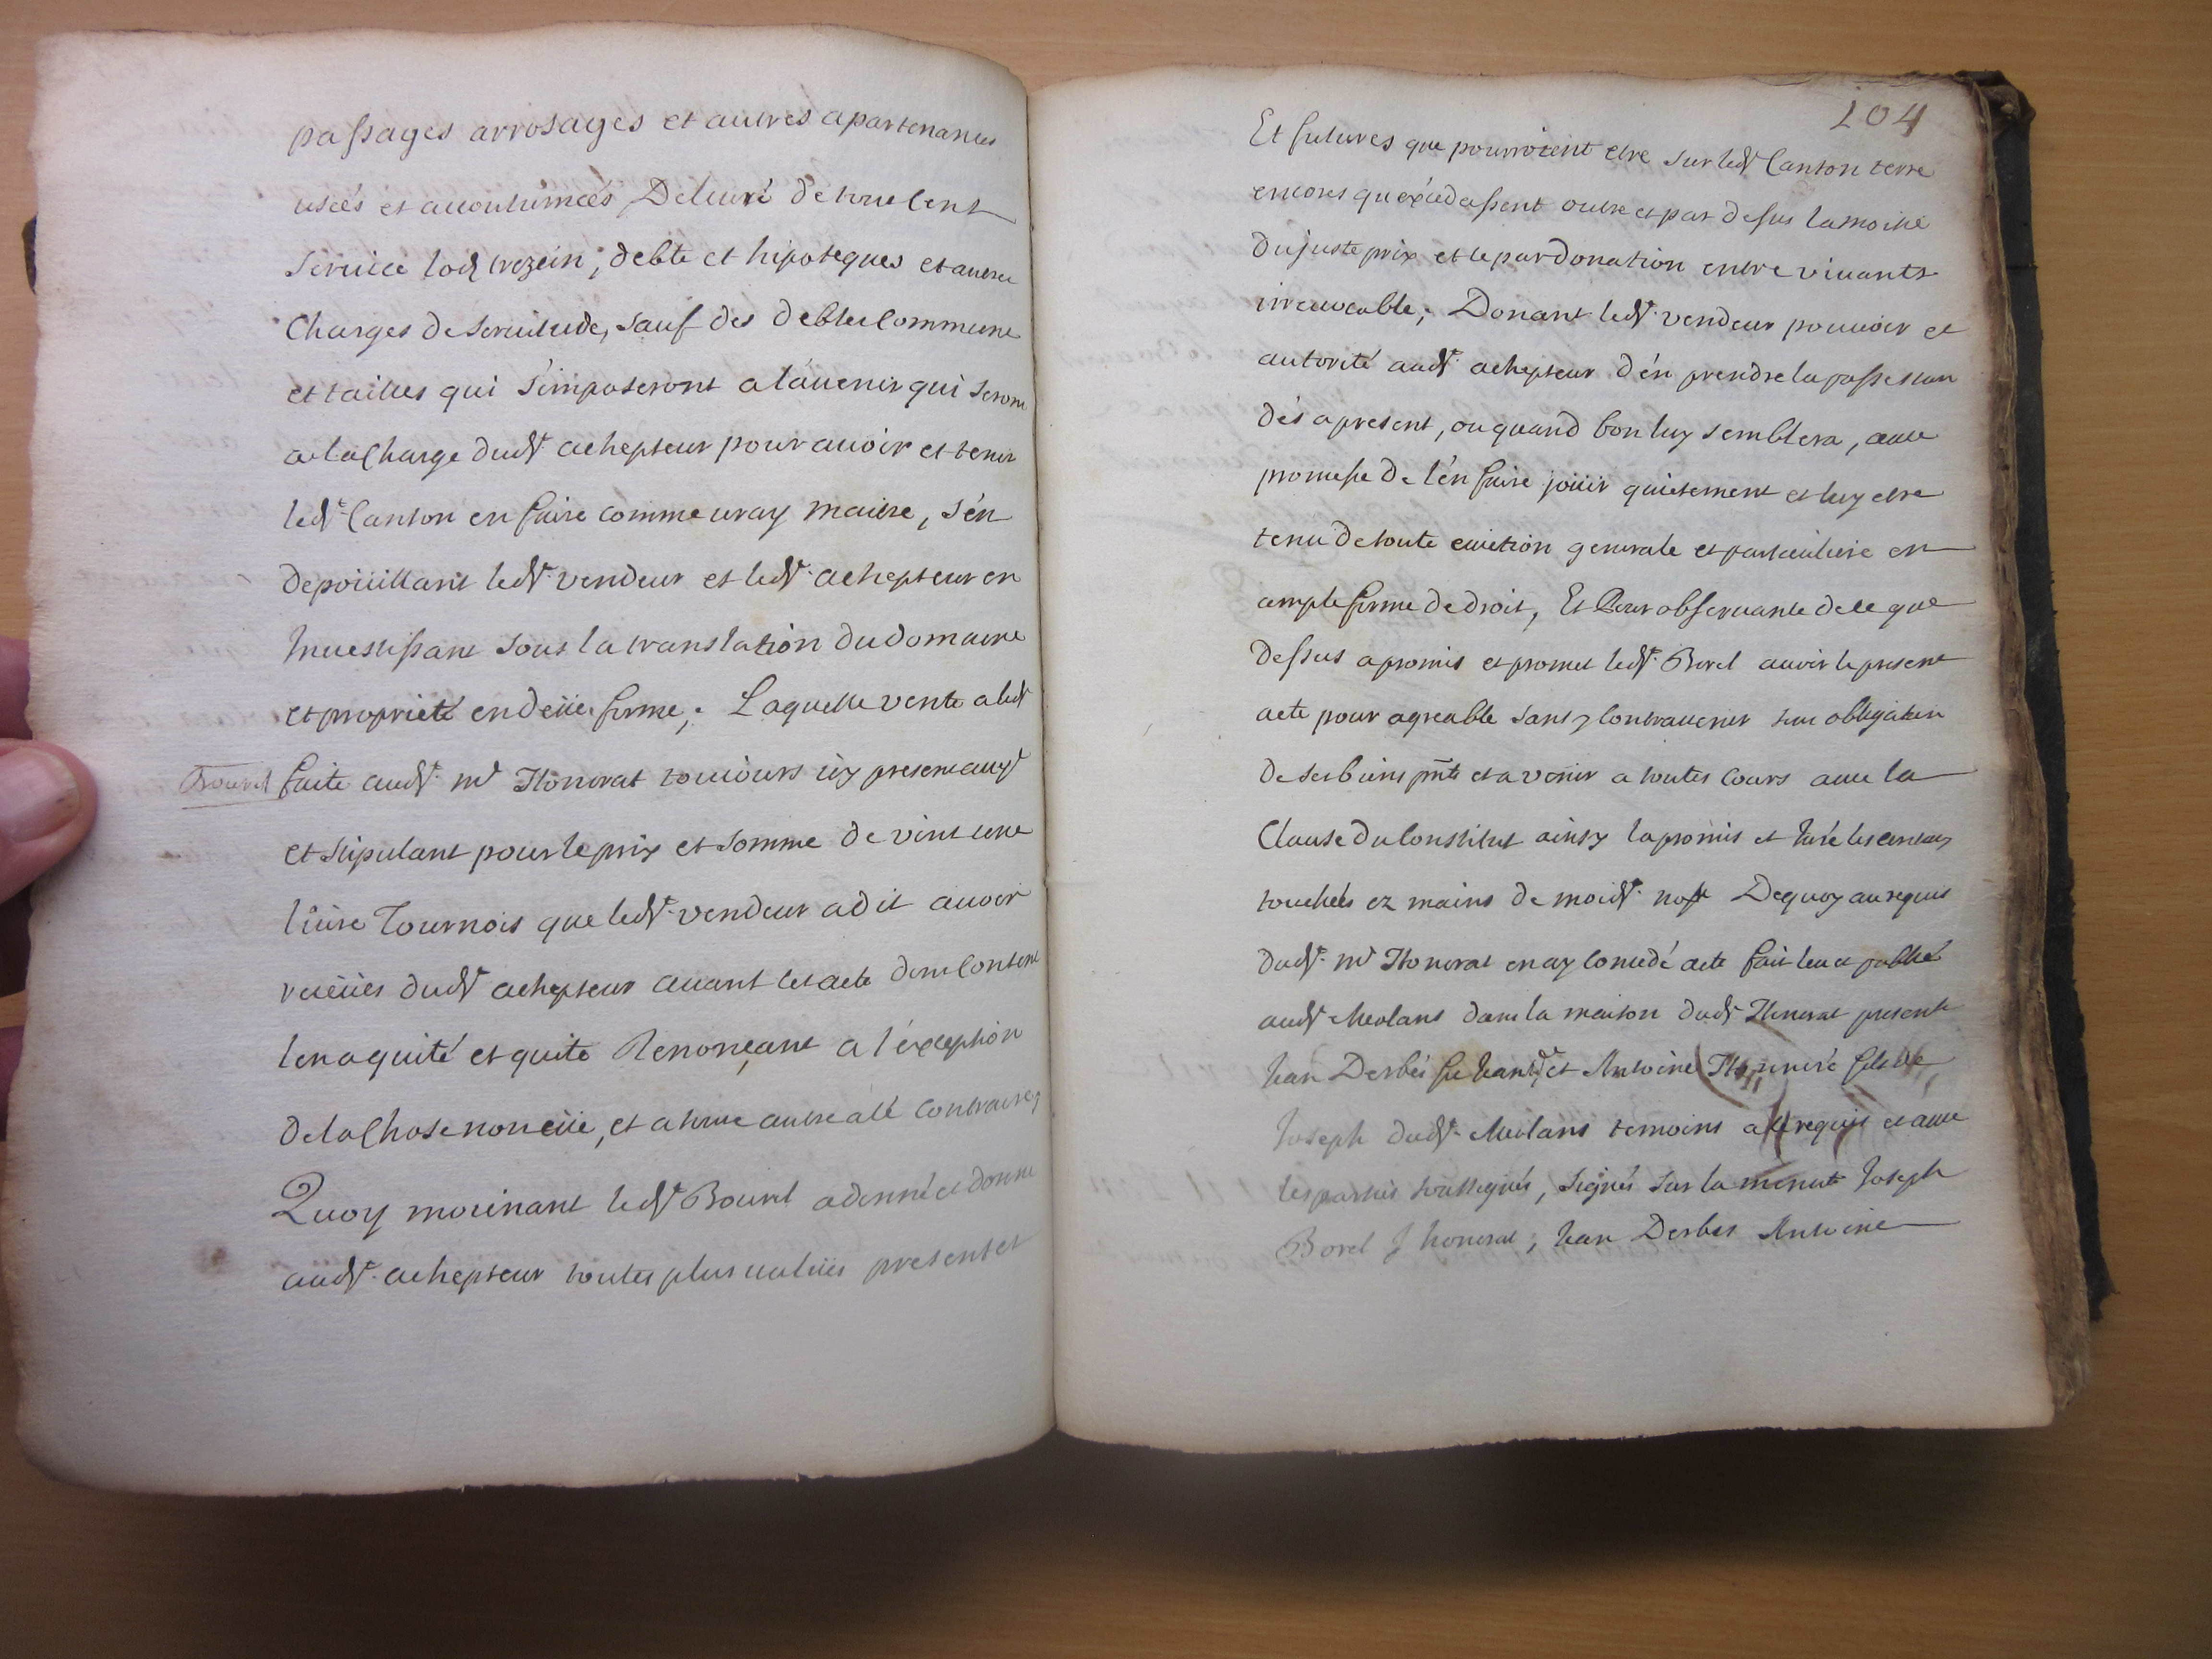 passages arrosages et autres apartenances
usées et accoutumées Deliuré de tout cens
seruice lodz trezein, debte et hipoteques et autre
Charges de seruitude, sauf des debtes Commune
et tailles qui s'imposeront a l'auenir qui seront
a la Charge dudt achepteur pour auoir et tenir
ledt Canton en faire comme uray maitre, s'en
depoüillant ledt vendeur et ledt achepteur en
Inuestissant sous la translation du domaine
et proprieté en deüe forme; Laquelle vente a ledt
Bourel
faite audt mr Honorat toujours icy present acept
et stipulant pour le prix et somme de vint une
liure Tournois que ledt vendeur a dit auoir
receües dudt achepteur auant cet acte dont Content
l'en a quité et quite Renonçant a l'exception
de la Chose non eüe, et a toute autre a ce contraire,
Quoy moienant ledt Bourel a donné et donne
audt achepteur toutes plus ualües presentes
104
Et futures que pourroient etre sur ledt Canton terre
encores qu'excedassent outre et par desus la moitié
du juste prix et ce par donation entre viuants
irreuocable; Donant ledt vendeur pouuoir et
autorité audt achepteur d'en prendre la possession
dés apresent, ou quand bon luy semblera, auec
promesse de l'en faire joüir quietement et luy etre
tenu de toute euiction generale et particuliere en
ample forme de droit, Et Pour obseruance de ce que
dessus a promis et promet ledt Borel auoir le present
acte pour agreable sans y Contrauenir sous obligation
de ses biens pnts et a venir a toutes Cours auec la
Clause du Constitut ainsy la promis et Juré les
touchées ez mains de moidt nore Dequoy au requis
dudt mr Honorat en ay concedé acte fait leu et publié
audt Meolans dans la maison dudt Honorat presents
Jean Derbés fu Jean et Antoine Honnoré fils de
Joseph dudt Meolans temoins a ce requis et auec
les parties soussignés, signés sur la minute Joseph
Borel J honorat, Jean Derbes Antoine